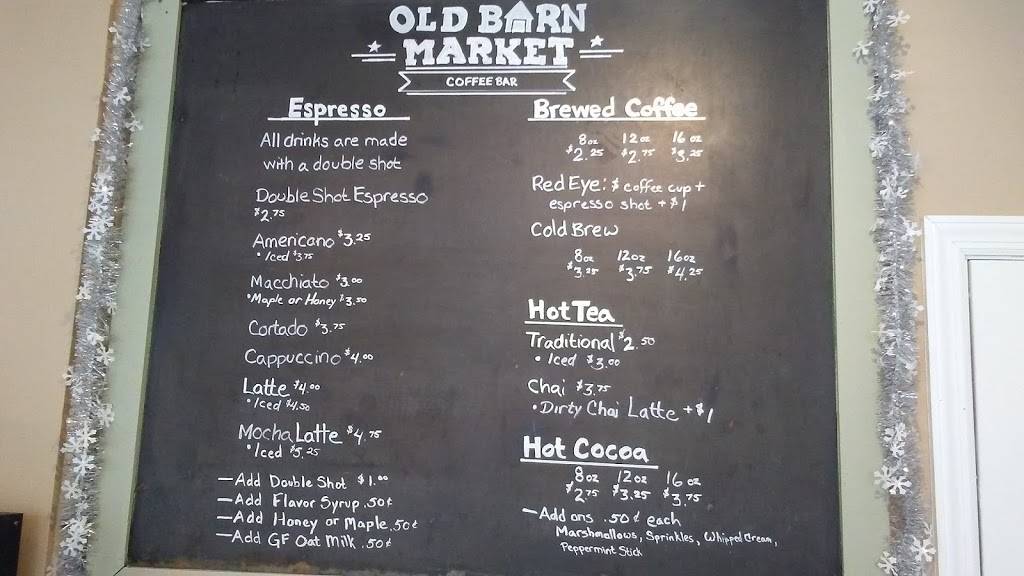 OLD BARN
MARKET
COFFEE BAR
Espresso
All drinks are made
with a double shot
Double Shot Espresso
$2.75
Americano $3.25
• Iced $3.75
Macchiato $3.00
• Maple or Honey $3.50
Cortado $3.75
Cappuccino $4.00
Latte $4.00
• Iced $4.50
Mocha Latte $4.75
• Iced $5.25
— Add Double Shot $1.00
— Add Flavor Syrup .50¢
— Add Honey or Maple .50¢
— Add GF Oat Milk .50¢
Brewed Coffee
8oz 12oz 16oz
$2.25 $2.75 $3.25
Red Eye: $ coffee cup +
espresso shot + $1
Cold Brew
8oz 12oz 16oz
$3.25 $3.75 $4.25
Hot Tea
Traditional $2.50
• Iced $3.00
Chai $3.75
• Dirty Chai Latte + $1
Hot Cocoa
8oz 12oz 16oz
$2.75 $3.25 $3.75
— Add ons .50¢ each
Marshmallows, Sprinkles, Whipped Cream,
Peppermint Stick